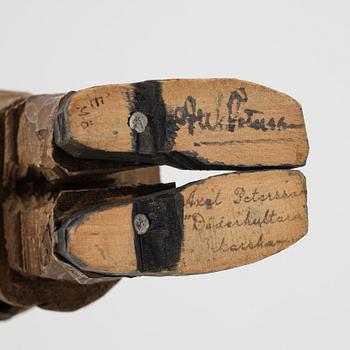 Axel Petersson
Axel Petersson
"Döderhultarn
Oskarshamn